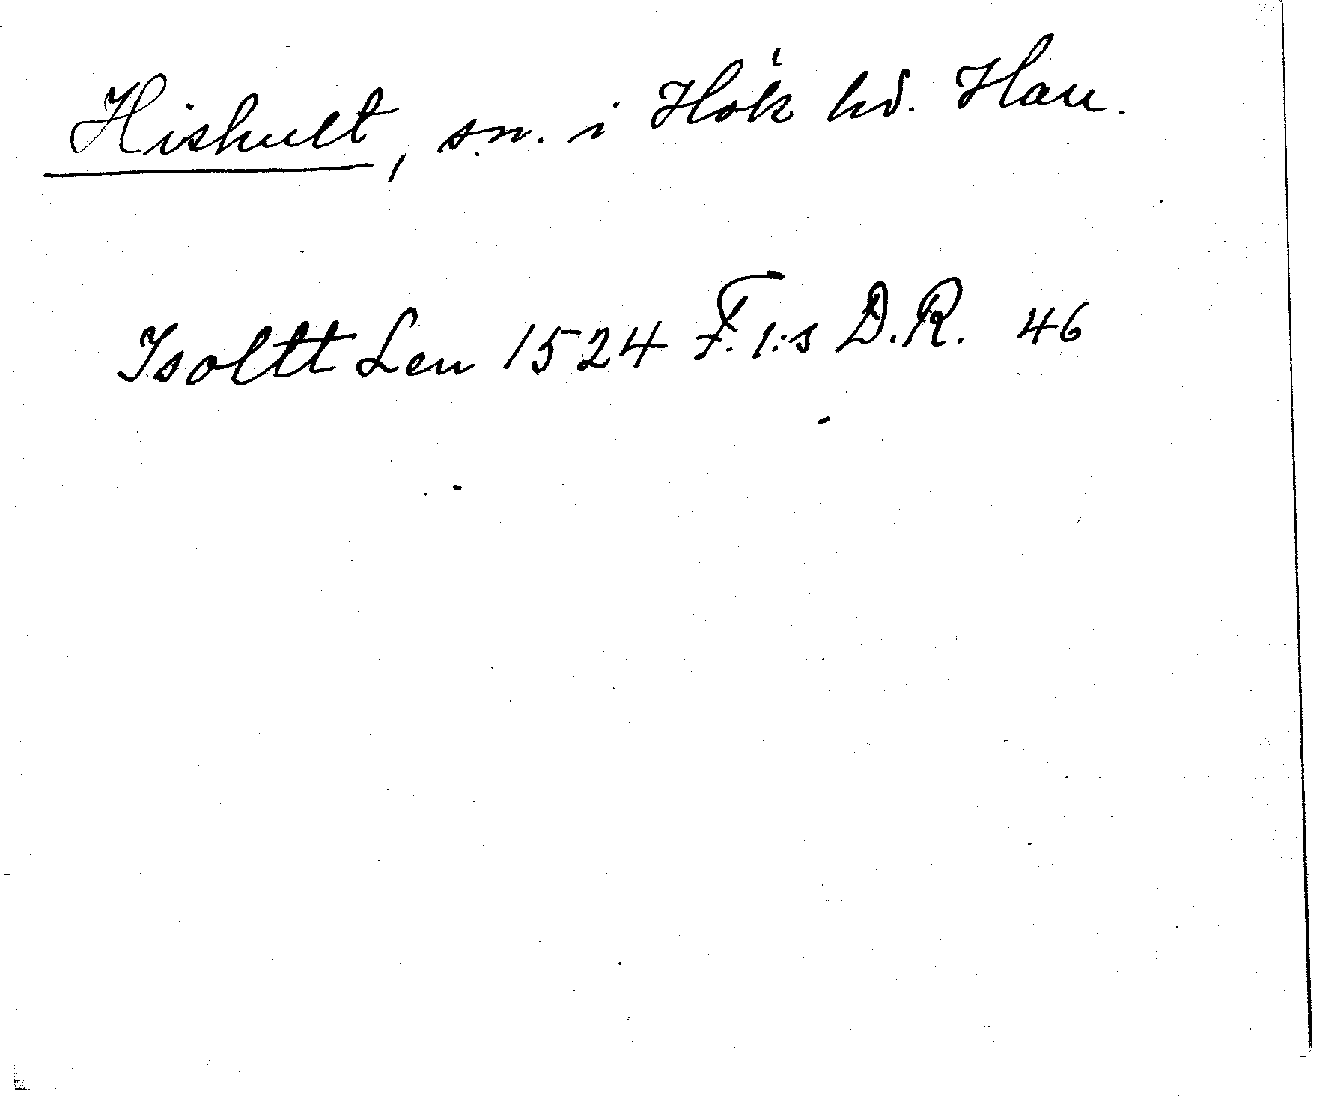 Hishult, sn. i Hök hd. Hall.
Isoltt Len 1524 F. I:s D.R. 46